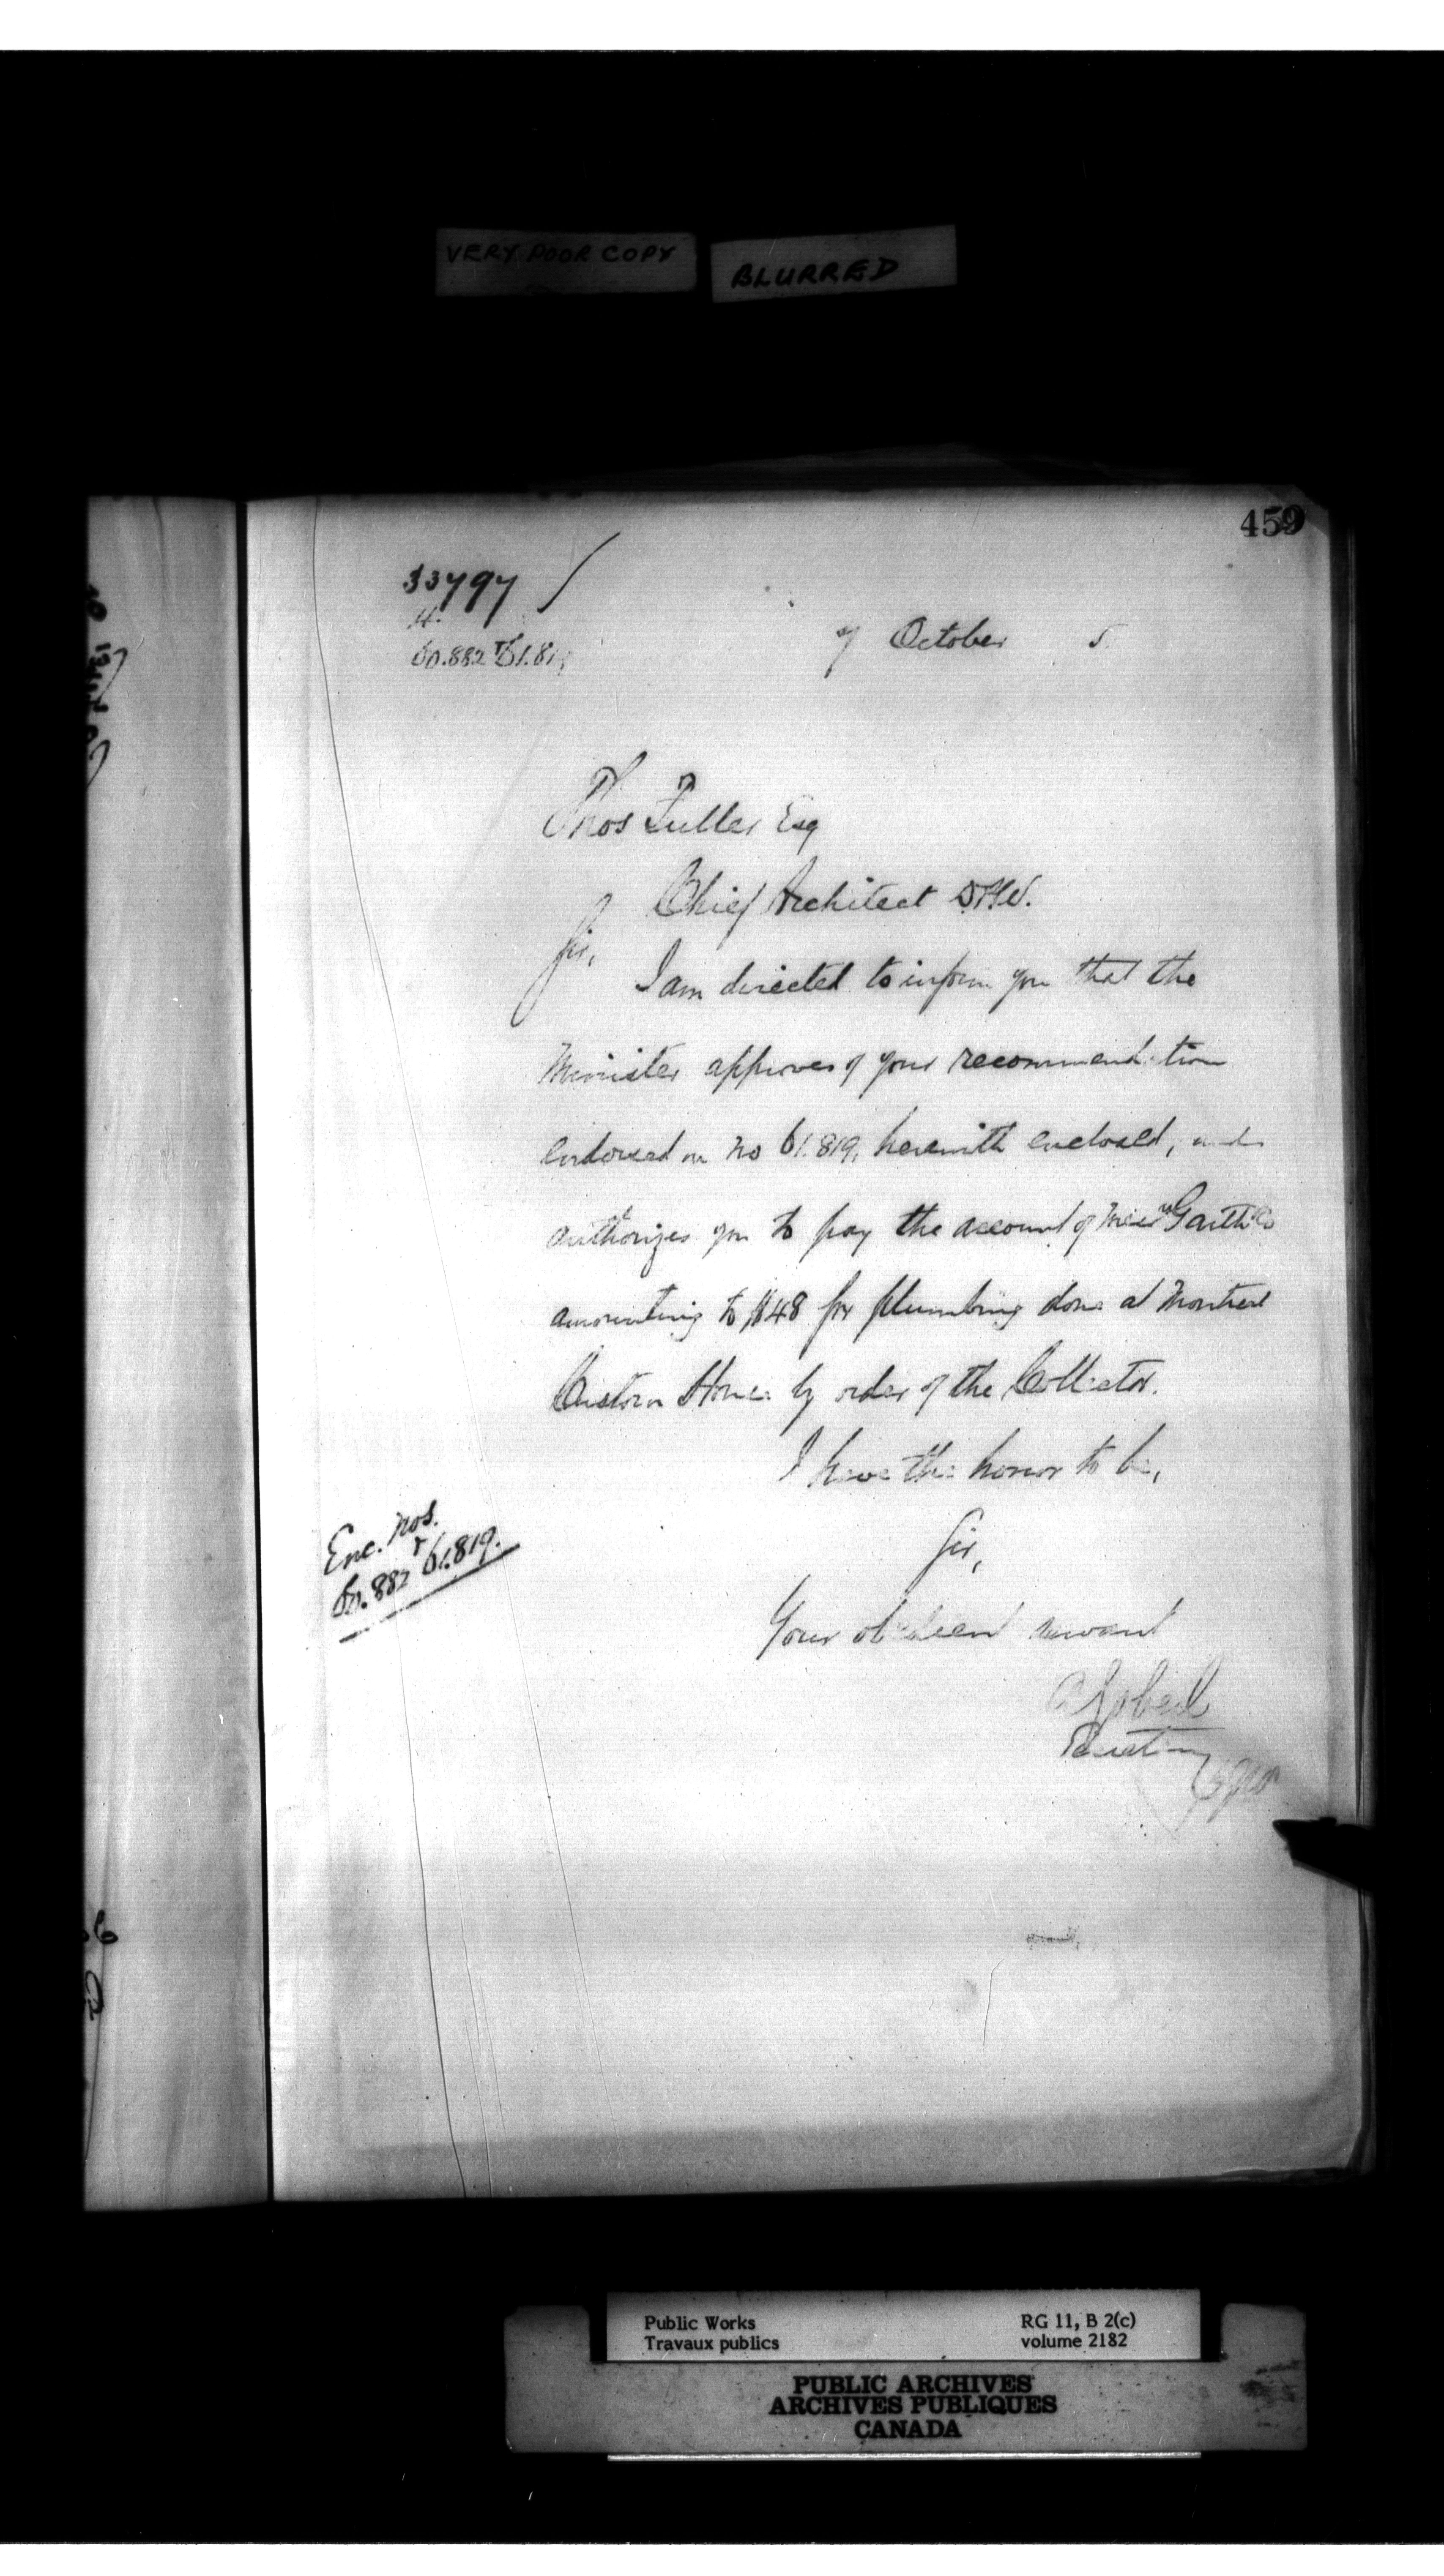 VERY POOR COPY
BLURRED
459
33797
H.
60.882 & 61.819
7 October 5
Thos Fuller Esq
Chief Architect D.P.W.
Sir,
I am directed to inform you that the
Minister approves of your recommendation
endorsed on no 61.819, herewith enclosed, and
authorizes you to pay the account of Messrs Garth & Co
amounting to $48 for plumbing done at Montreal
Custom House by order of the Collector.
I have the honor to be,
Sir,
Your obedient servant
A Gobeil
Secretary
Enc. nos.
60.882 & 61.819.
Public Works
Travaux publics
RG 11, B 2(c)
volume 2182
PUBLIC ARCHIVES
ARCHIVES PUBLIQUES
CANADA